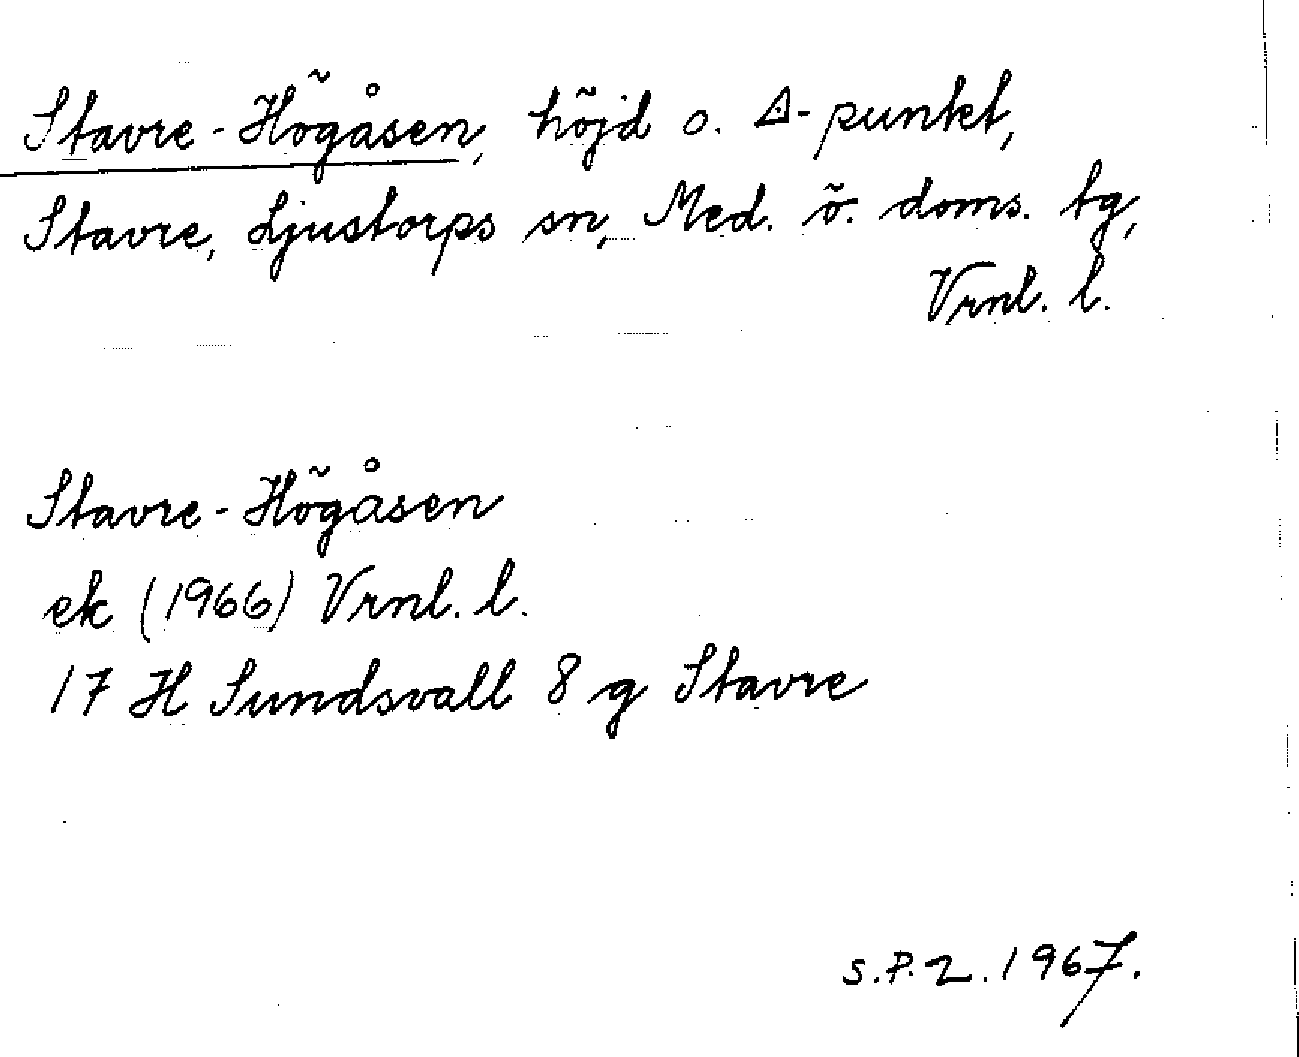 Stavre-Högåsen, höjd o. △-punkt,
Stavre, Ljustorps sn, Med. ö. doms. tg,
Vrnl. l.
Stavre-Högåsen
ek (1966) Vrnl. l.
17 H Sundsvall 8 g Stavre
S.P.Z. 1967.